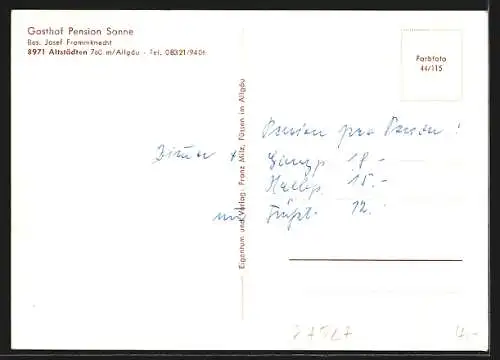 Gasthof Pension Sonne
Bes. Josef Frommknecht
8971 Altstädten 760 m/Allgäu - Tel. 08321/9406
Farbfoto
44/115
Eigentum und Verlag: Franz Milz, Füssen im Allgäu
Pension pro Person!
Zimmer + Ganzp 18.-
Halbp. 15.-
mit Frühst. 12.-
4.-